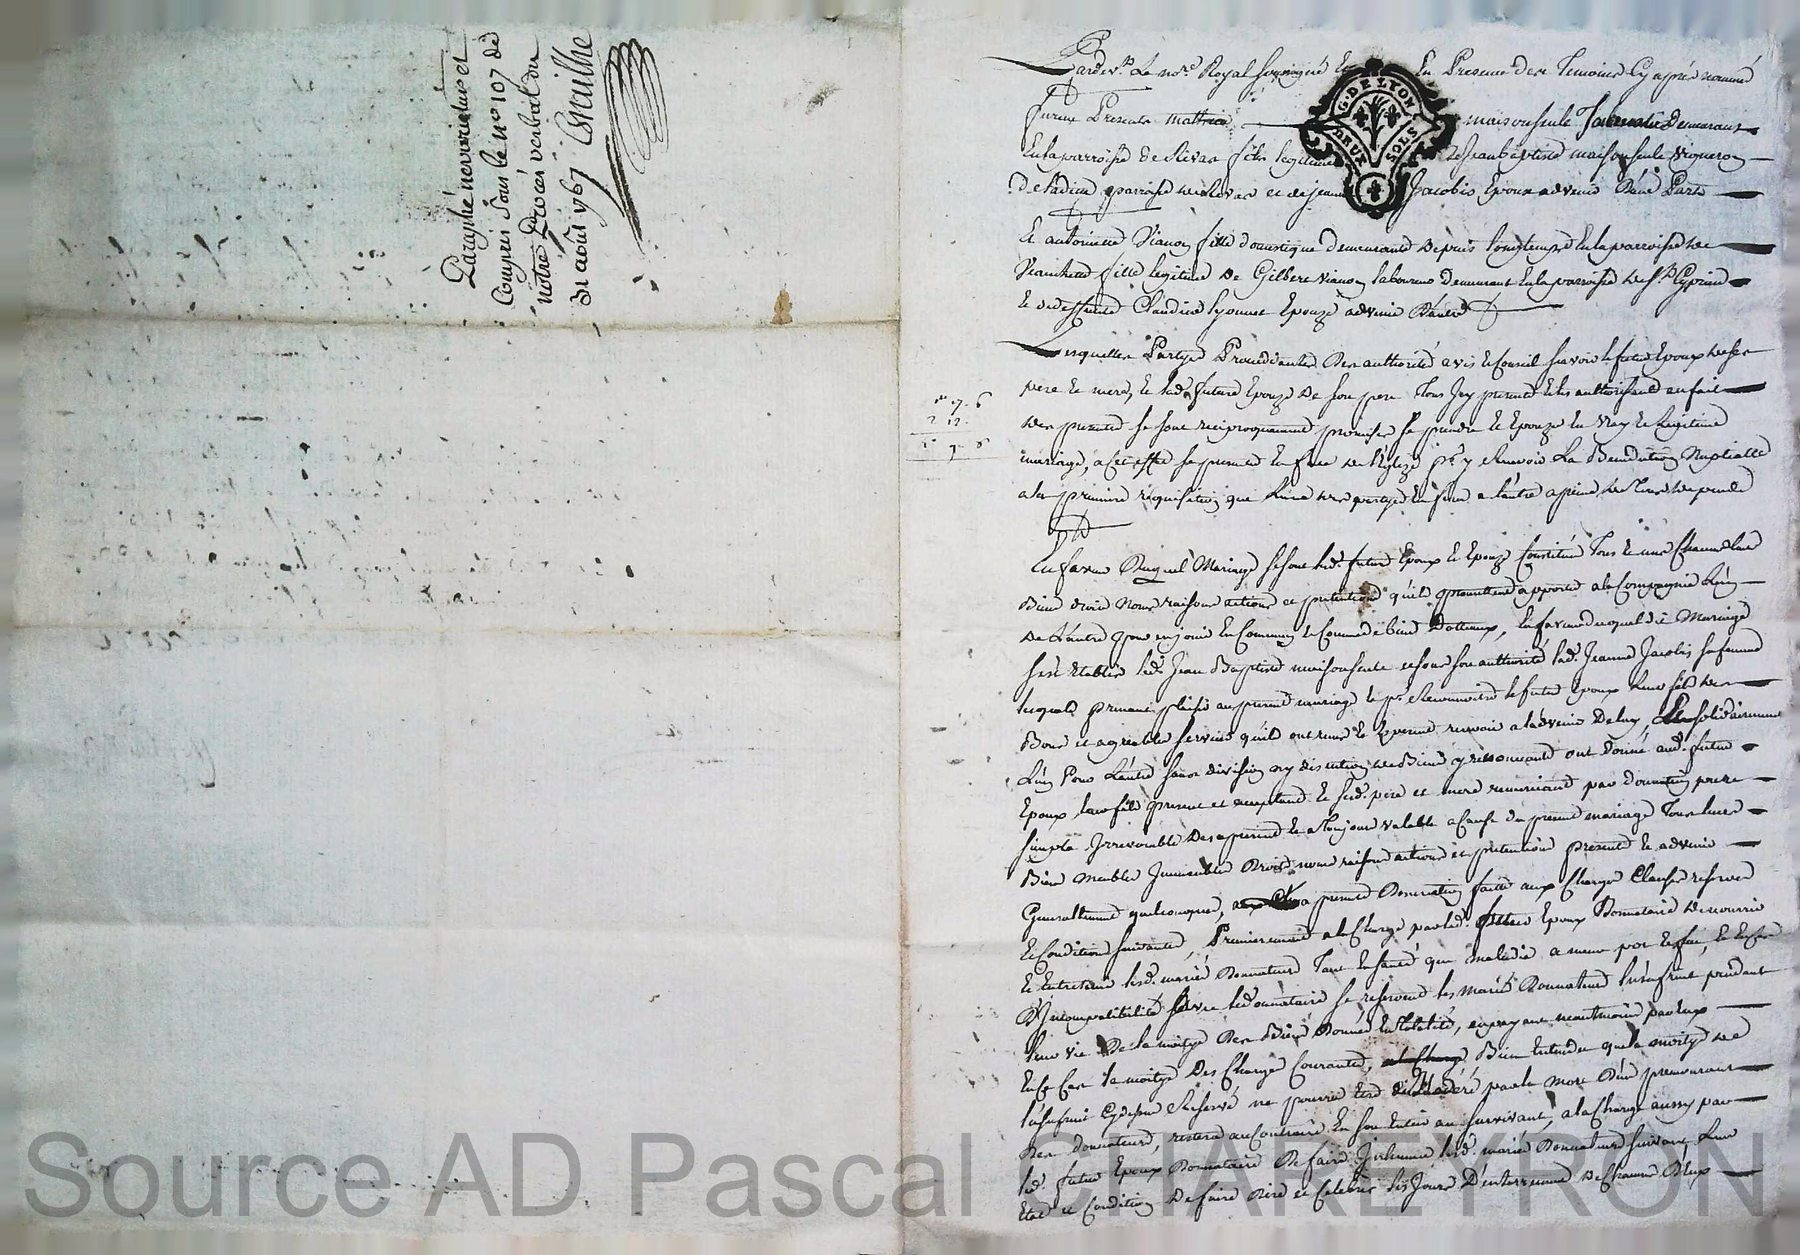 Paraphé nevarietur et
Compris sous le no 107 de
notre procès verbal du
31 août 1767
G. DE LYON
DEUX SOLS
Pardevt Le nore Royal soussigné Et En Presence des Temoins Cy après nommé
furent Presents mathieu maisonseule demeurant
En la parroisse de Rivas fils legitime de Jean baptiste maisonseule vigneron
de ladite parroisse de Rivas et de jeanne Jacobis Epoux advenir Dune Part
Et antoinette Vianon fille domestique demeurante depuis longtemps En la parroisse de
Veauchette fille legitime de Gilbert vianon laboureur demeurant En la parroisse de St Cyprien
Et de deffunte Claudine lyonnet Epouze advenir D'autre
Lesquelles Partyes Proceddantes De authorité avis Et Conseil savoir le futur Epoux de ses
pere Et mere, Et lad. future Epouze de son pere Tous Icy presents Et les authorisant au fait
des presentes se sont reciproquement promises se prendre Et Epouzer En Vray Et Legitime
mariage, a Cet effet se presenter En face de L'Eglize pr y Recevoir La Benediction Nuptialle
a la premiere requisition que L'une des partyes En fera a l'autre a peine de Tous depends
En faveur Duquel Mariage se sont led. futur Epoux Et Epouze Constitués Tous Et uns Chacuns leurs
Biens droits Noms raisons actions et pretentions qu'ils promettent apporter a la Compagnie L'un
De L'autre pour en jouir En Commun Et Comme de biens Dotteaux, En faveur duquel dit Mariage
sest Etablis led. Jean Baptiste maisonseule et sous son authorité lad. Jeanne Jacobis sa femme
lesquels prenant plaisir au present mariage Et pr Reconnoitre le futur Epoux Leur fils des
Bons et agreables services qu'ils ont reçus Et Esperent recevoir a l'advenir De luy, solidairement
L'un Pour L'autre sans division ny discution de Biens y renonceant ont donné aud. futur
Epoux leur fils present et acceptant Et sesd. pere et mere remerciant par donnation pure
simple Irrevocable Des a present Et a Toujours valable a Cause du present mariage Tous leurs
Biens meubles Immeubles Droits noms raisons actions et pretentions presents Et advenir
Generallement quelconques, presente Donnation faitte aux Charges Clauses reserves
Et Conditions suivantes, Premierement a la Charge par led. futur Epoux Donnataire de nourrir
Et Entretenir lesd. mariés Donnateurs Tant En santé que maladie a meme pot Et feu, Et En Cas
D'Incompatibilité led. donnataire se reservent les mariés Donnateurs l'usufruit pendant
leur vie De la moitye Des Biens Donnés En Totalité, en payant neantmoins par Eux
En Ce Cas la moitye Des Charges Courantes, Bien Entendu que la moitye de
l'usufruit Cydessus Reservé ne pourra Etre par la mort D'un premourant
Des donnateurs, restera au Contraire En son Entier au survivant, a la Charge aussy par
led. futur Epoux Donnataire De faire Inhumer lesd. mariés Donnateurs suivant Leur
Etat et Condition De faire Dire et Celebrer les Jours D'enterrement De Chacun D'Eux
Source AD Pascal CHAREYRON